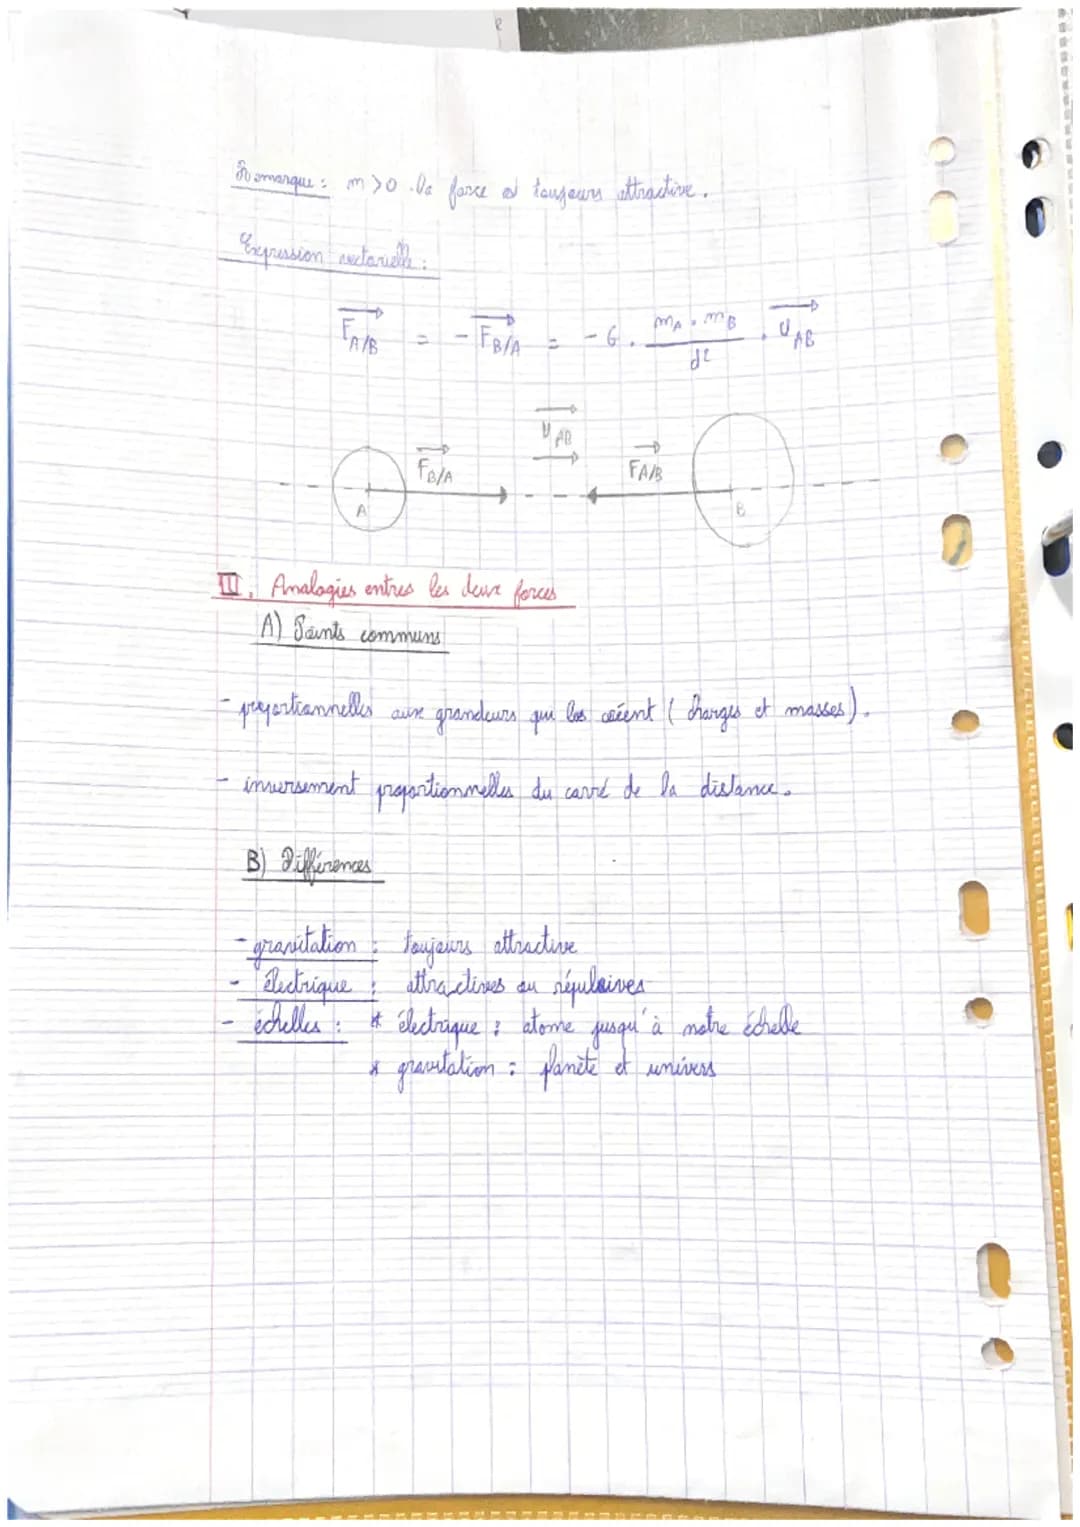 Remarque : m > 0 . La force est toujours attractive .
Expression vectorielle :
F A/B = - F B/A = - G . m A . m B / d² . U AB
U AB
F B/A
F A/B
A
B
III. Analogies entres les deux forces
A) Points communs
- proportionnelles aux grandeurs qui les créent ( charges et masses ) .
- inversement proportionnelles du carré de la distance .
B) Différences
- gravitation : toujours attractive
- électrique : attractives ou répulsives
- échelles : * électrique : atome jusqu'à notre échelle
* gravitation : planète et univers